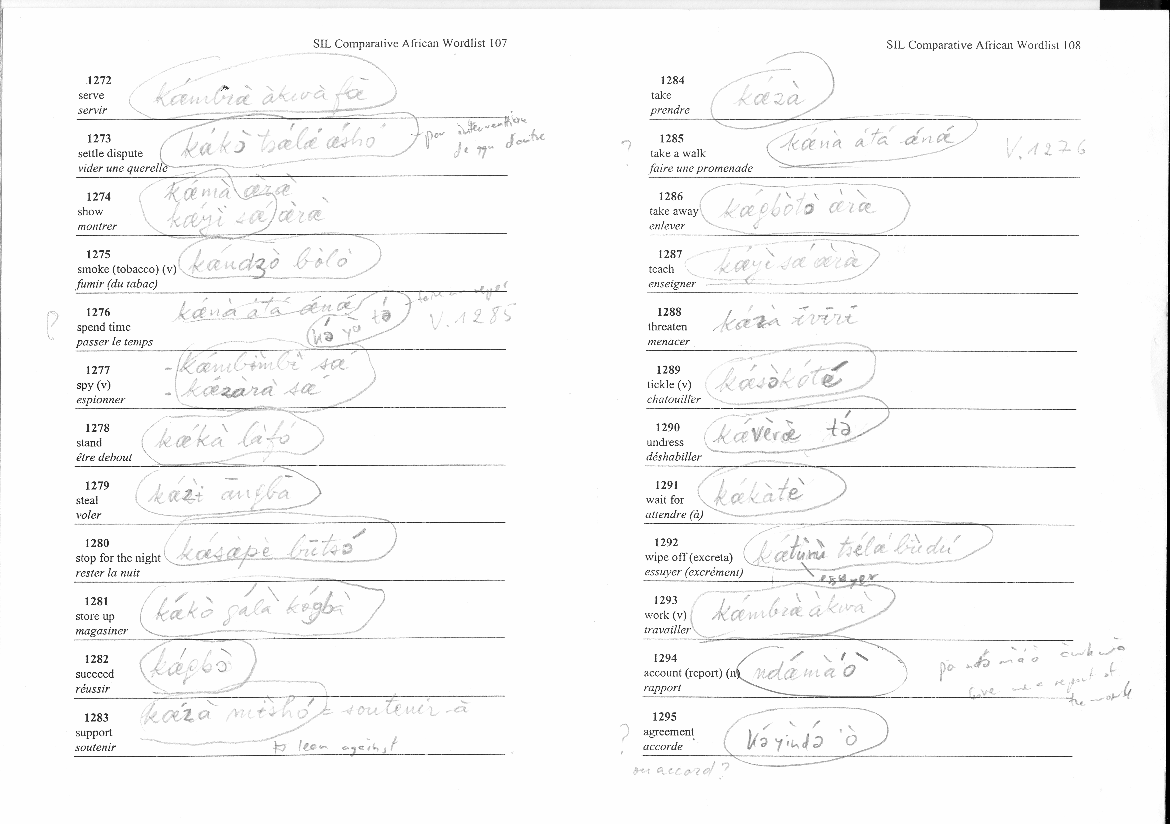 SIL Comparative African Wordlist 107
1272
serve
servir
kámbrà àkwà fā
1273
settle dispute
vider une querelle
kákɔ̀ tsálá áshó
1274
show
montrer
kámà ærà
káyì sá ærà
1275
smoke (tobacco) (v)
fumir (du tabac)
kándzò bòlò
1276
spend time
passer le temps
kǽnà átá ánǽ
V. 1285
1277
spy (v)
espionner
- kámbìmbì sǽ
- kǽzàrà sǽ
1278
stand
être debout
kǽkà làfó
1279
steal
voler
kǽzɨ̀ āngbā
1280
stop for the night
rester la nuit
kásàpè būtsó
1281
store up
magasiner
kákò gálà kógbà
1282
succeed
réussir
kágbɔ̀
1283
support
soutenir
kǽzà mìshó = soutenir à
to lean against
SIL Comparative African Wordlist 108
1284
take
prendre
kǽzà
?
1285
take a walk
faire une promenade
kǽnà átá ánǽ
V. 1276
1286
take away
enlever
kágbòtò ærà
1287
teach
enseigner
káyì sá ærà
1288
threaten
menacer
kǽzà īvīrī
1289
tickle (v)
chatouiller
kásəkóté
1290
undress
déshabiller
kǽvèrǽ tə́
1291
wait for
attendre (à)
kákàtè
1292
wipe off (excreta)
essuyer (excrément)
kátùnù tsélá bùdú
essuyer
1293
work (v)
travailler
kǽmbrà àkwà
1294
account (report) (n)
rapport
ndámà'ò
Give me a report of
the work
?
1295
agreement
accorde
kə́yìndə́ 'ò
ou accord?